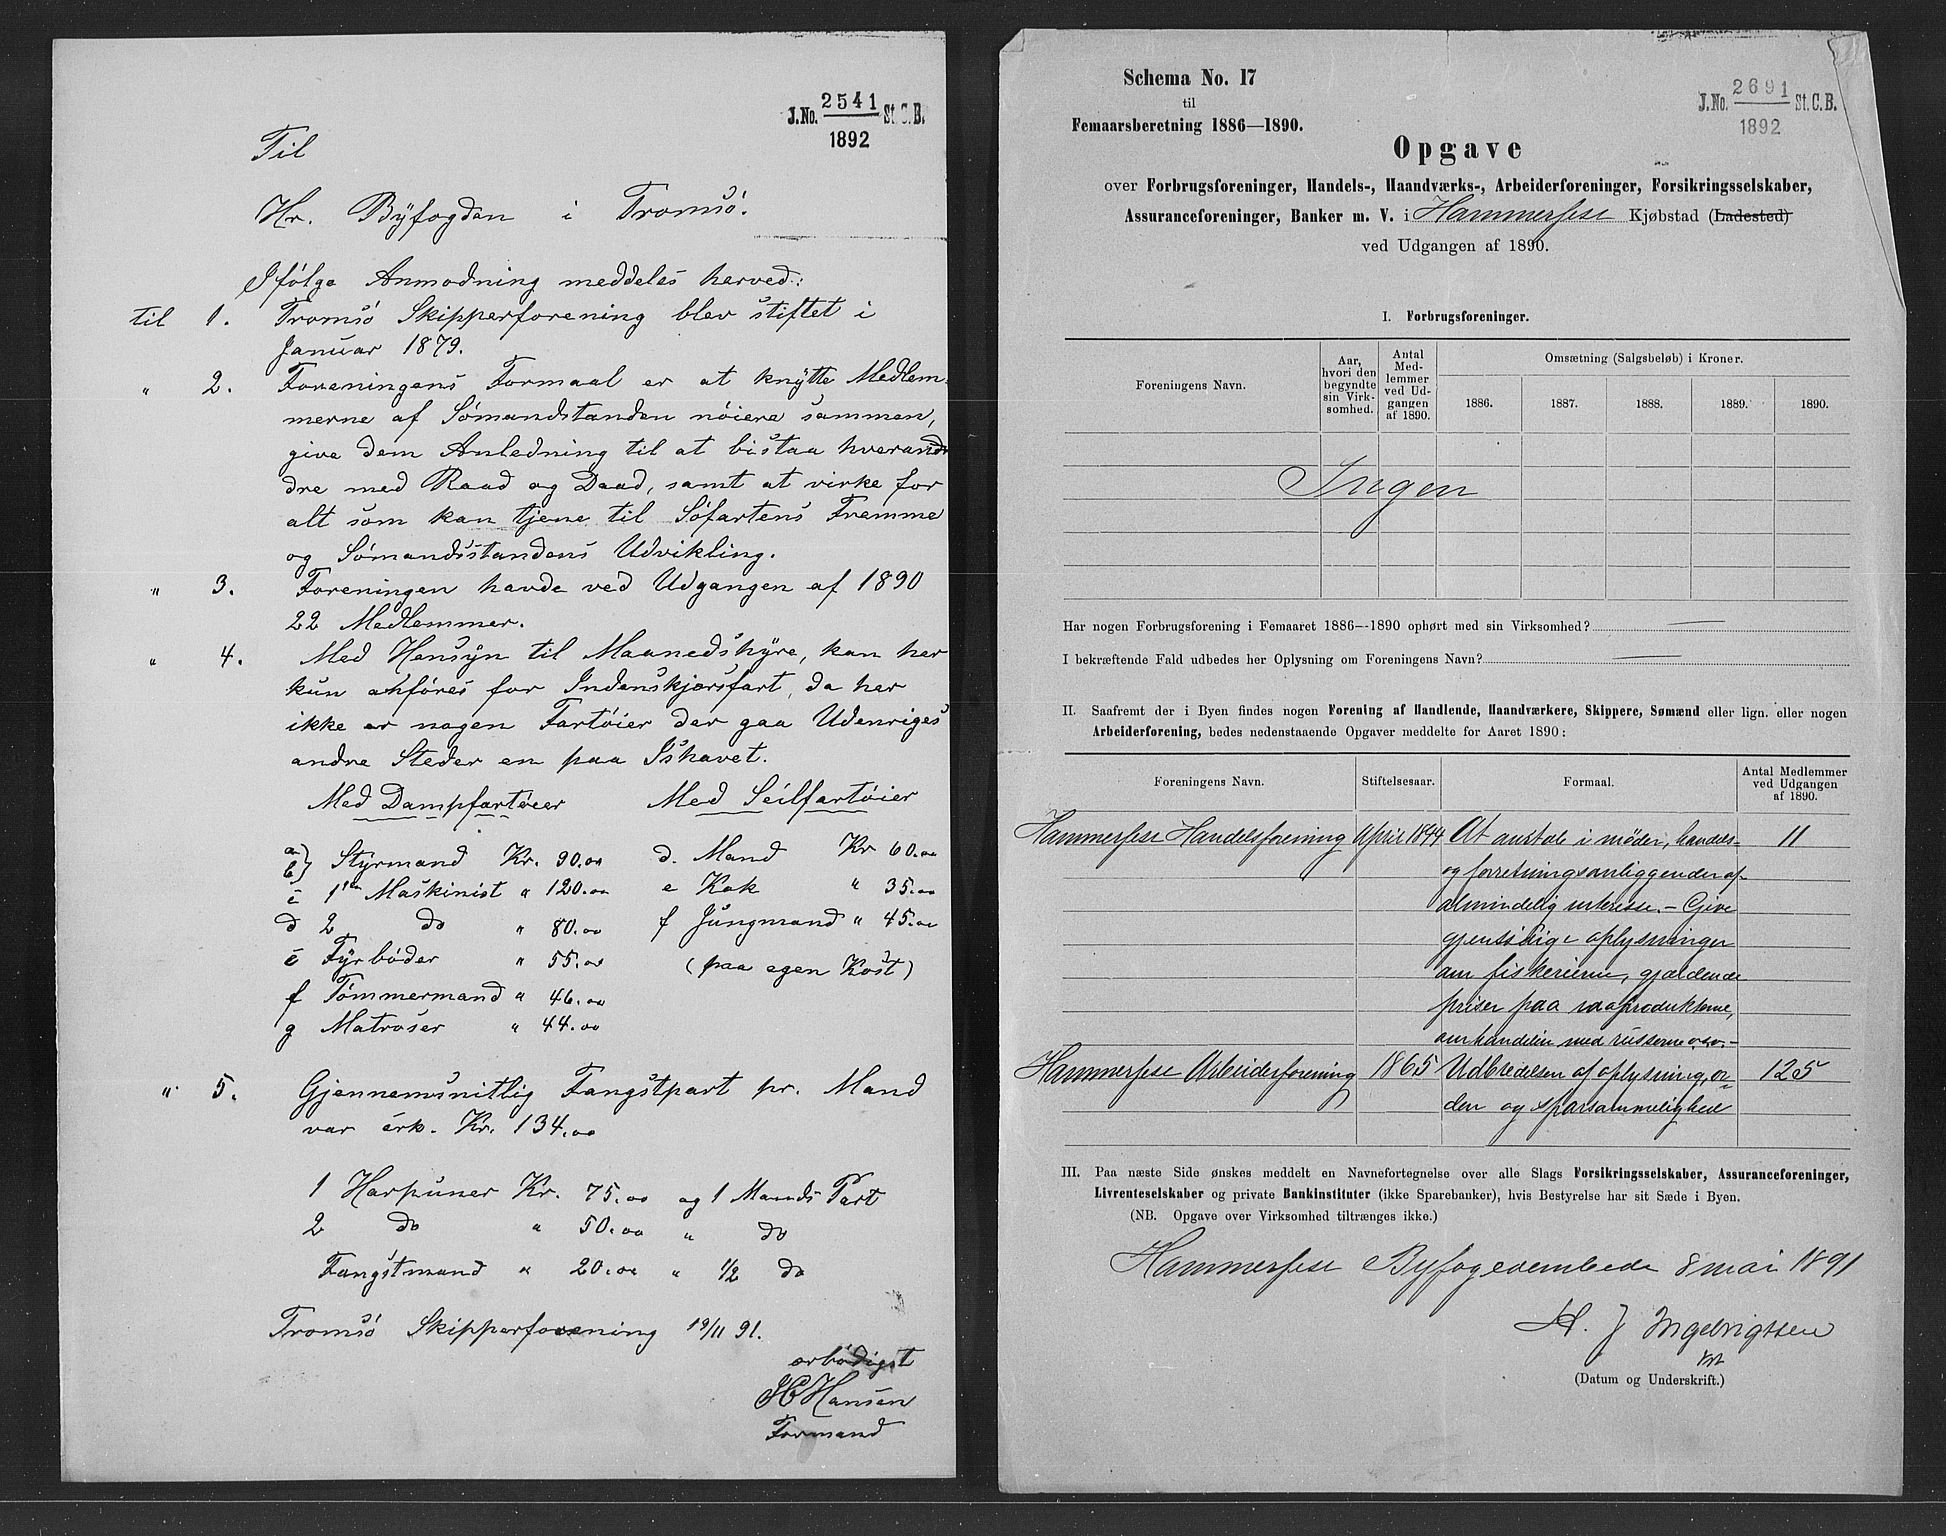 J.No. 2541 St.C.B.
1892
Til
Hr. Byfogden i Tromsö.
Ifölge Anmodning meddeles herved:
til 1. Tromsö Skipperforening blev stiftet i
Januar 1879.
" 2. Foreningens Formaal er at knytte Medlem-
merne af Sömandstanden nöiere sammen,
give dem Anledning til at bistaa hveran-
dre med Raad og Daad, samt at virke for
alt som kan tjene til Söfartens Fremme
og Sömandsstandens Udvikling.
" 3. Foreningen havde ved Udgangen af 1890
22 Medlemmer.
" 4. Med Hensyn til Maanedshyre, kan her
kun anföres for Indenskjærsfart, da her
ikke er nogen Fartöier der gaa Udenriges
andre Steder en paa Ishavet.
Med Dampfartöier Med Seilfartöier
a) b) Styrmand Kr. 90.00 d. Mand Kr 60.00
c 1ste Maskinist " 120.00 e Kok " 35.00
d 2 do " 80.00 f Jungmand " 45.00
e Fyrböder " 55.00 (paa egen Kost)
f Tömmermand " 46.00
g Matroser " 44.00
" 5. Gjennemsnitlig Fangstpart pr. Mand
var cirk. Kr. 134.00
1 Harpuner Kr. 75.00 og 1 Mands Part
2 do " 50.00 " do
Fangstmand " 20.00 " 1/2 do
Tromsö Skipperforening 19/11 91.
ærbödigst
HC Hansen
Formand
Schema No. 17
til
Femaarsberetning 1886—1890.
J.No. 2691 St.C.B.
1892
Opgave
over Forbrugsforeninger, Handels-, Haandværks-, Arbeiderforeninger, Forsikringsselskaber,
Assuranceforeninger, Banker m. V. i Hammerfest Kjøbstad (Ladested)
ved Udgangen af 1890.
I. Forbrugsforeninger.
Foreningens Navn.
Aar, hvori den begyndte sin Virk-somhed.
Antal Med-lemmer ved Ud-gangen af 1890.
Omsætning (Salgsbeløb) i Kroner.
1886. 1887. 1888. 1889. 1890.
Ingen
Har nogen Forbrugsforening i Femaaret 1886—1890 ophørt med sin Virksomhed? —
I bekræftende Fald udbedes her Oplysning om Foreningens Navn? —
II. Saafremt der i Byen findes nogen Forening af Handlende, Haandværkere, Skippere, Sømænd eller lign. eller nogen
Arbeiderforening, bedes nedenstaaende Opgaver meddelte for Aaret 1890:
Foreningens Navn. Stiftelsesaar. Formaal. Antal Medlemmer ved Udgangen af 1890.
Hammerfest Handelsforening April 1844 At avtale i møder, handels- 11
og forretningsanliggender af
almindelig interesse. – Give
gjensidige oplysninger
om fiskerierne, gjældende
priser paa raaprodukterne,
om handelen med russerne o.s.v. –
Hammerfest Arbeiderforening 1865 Udbredelsen af oplysning, or- 125
den og sparsommelighed
III. Paa næste Side ønskes meddelt en Navnefortegnelse over alle Slags Forsikringsselskaber, Assuranceforeninger,
Livrenteselskaber og private Bankinstituter (ikke Sparebanker), hvis Bestyrelse har sit Sæde i Byen.
(NB. Opgave over Virksomhed tiltrænges ikke.)
Hammerfest Byfogedembede 8 mai 1891
H. J Ingebrigtsen
kst
(Datum og Underskrift.)